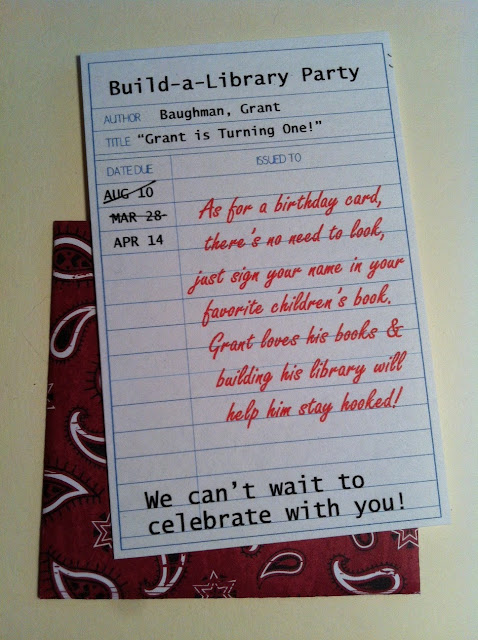 Build-a-Library Party
AUTHOR Baughman, Grant
TITLE “Grant is Turning One!”
DATE DUE ISSUED TO
AUG 10
MAR 28
APR 14
As for a birthday card,
there's no need to look,
just sign your name in your
favorite children's book.
Grant loves his books &
building his library will
help him stay hooked!
We can't wait to
celebrate with you!